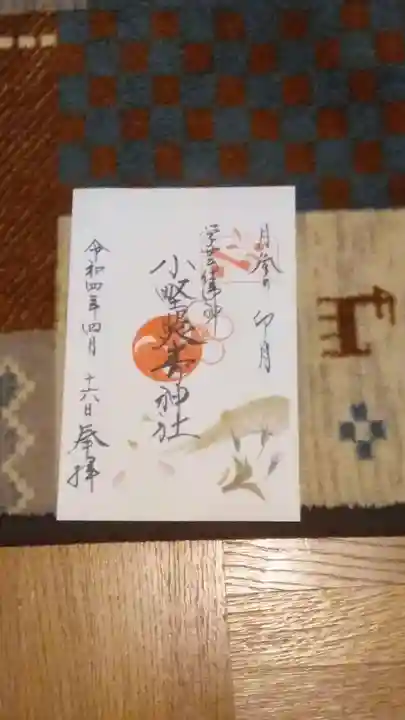 月参り 卯月
学芸の神
小野照崎神社
令和四年四月十六日 奉拝